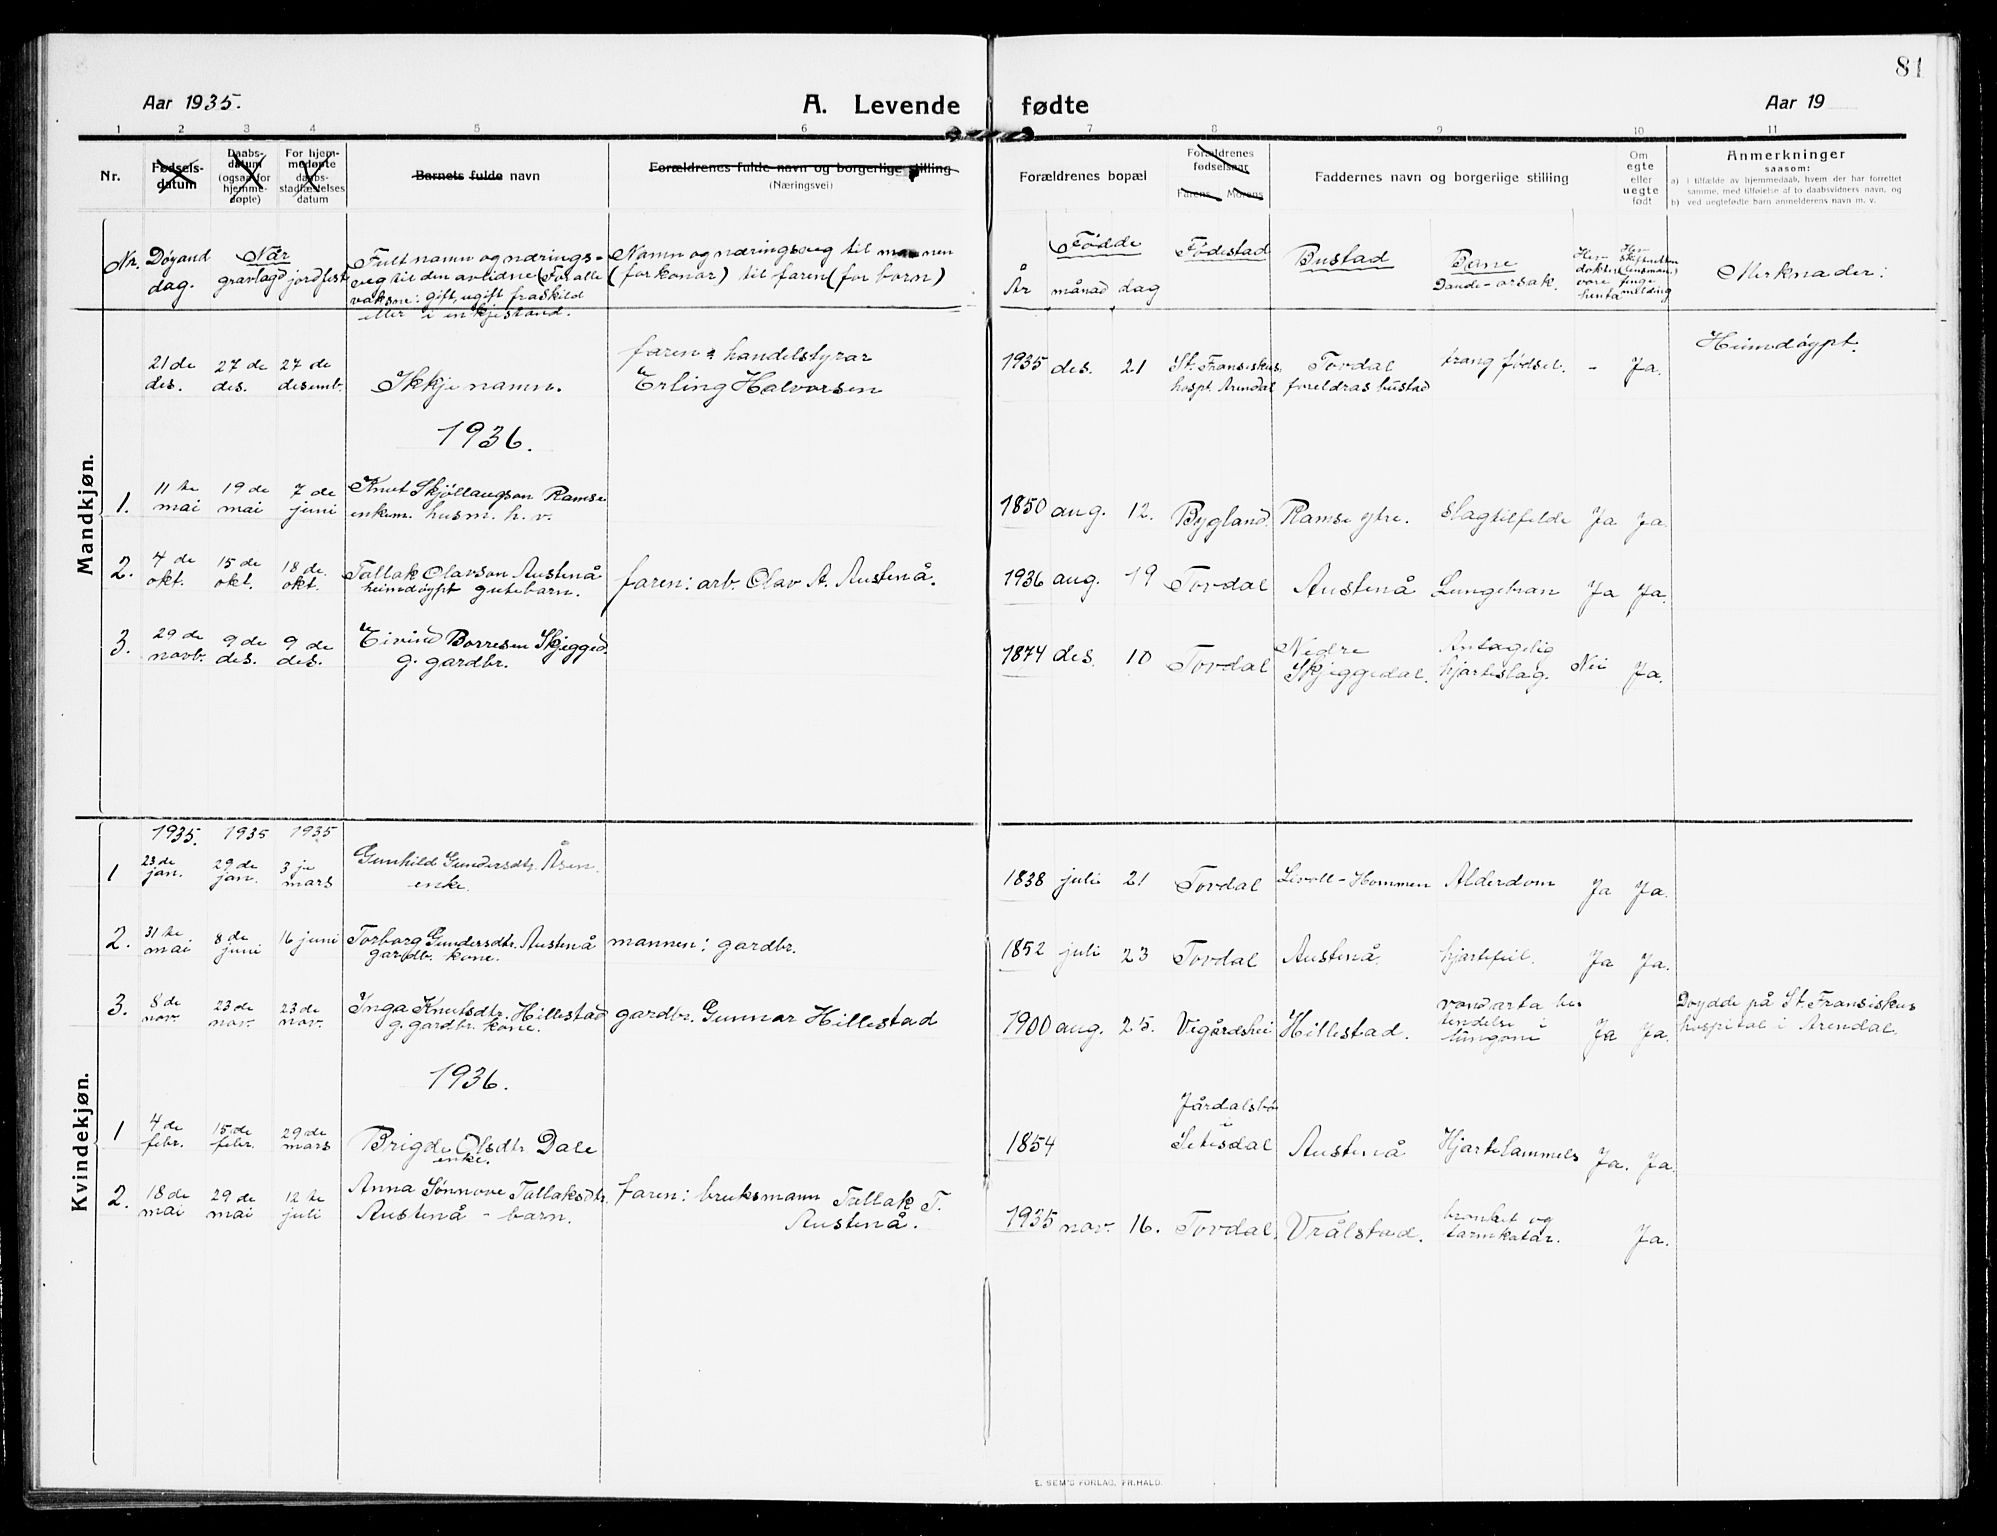 81
Aar 1935.
A. Levende fødte
Aar 19
1 2 3 4 5 6 7 8 9 10 11
Nr.
Fødsels-
datum
Daabs-
datum
(ogsaa for
hjemme-
døpte)
For hjem-
medøpte
daabs-
stadfæstelses
datum
Barnets fulde navn
Forældrenes fulde navn og borgerlige stilling
(Næringsvei)
Forældrenes bopæl
Forældrenes
fødselsaar
Farens Morens
Faddernes navn og borgerlige stilling
Om
egte
eller
uegte
født
Anmerkninger
saasom:
a) i tilfælde av hjemmedaab, hvem der har forrettet
samme, med tilføielse af to daabsvidners navn, og
b) ved uegtefødte barn anmelderens navn m. v.
Nr.
Døyand
dag.
Når
gravlagd jordfest
Fult namn og nærings-
veg til den avlidne (For alle
vaksne: gift, ugift fraskild
eller i enkjestand.
Namn og næringsveg til mannen
(for konor) til faren (for born)
Fødde
År månad dag
Fødestad
Bustad
Bane
Daude-orsak.
Merknader:
Mandkjøn.
21 de
des.
27 de
des.
27 de
desemb.
Ikkje namn.
faren: handelstyrar
Erling Halvorsen
1935 des. 21
St. Fransiskus.
hospt. Arendal
Tovdal
foreldras bustad
trang fødsel. - Ja.
Heimdøypt.
1936.
1.
11 te
mai
19 de
mai
7 de
juni
Knut Skjøllaugson Ramse
enkem. husm. h. v.
1850 aug. 12. Bygland. Ramse ytre. slagtilfelde Ja Ja.
2.
4 de
okt.
15 de
okt.
18 de.
okt.
Tallak Olavson Austenå
heimdøypt gutebarn.
faren: arb. Olav A. Austenå.
1936 aug. 19 Tovdal Austenå Lungebran Ja Ja.
3.
29 de
novb.
9 de
des.
9 de
des.
Eivind Borresen Skjegged.
g. gardbr.
1874 des. 10 Tovdal
Nedre
Skjeggedal.
Antagelig
hjarteslag.
Nei Ja.
Kvindekjøn.
1935. 1935 1935
1
23 de
jan.
29 de
jan.
3 je
mars
Gunhild Gundersdtr. Åsen.
enke.
1838 juli 21 Tovdal Livoll-Hommen Alderdom Ja Ja.
2.
31 te
mai
8 de
juni
16 juni
Torborg Gundersdtr. Austenå
gardbr. kone.
mannen: gardbr.
1852 juli 23 Tovdal Austenå. hjartefeil. Ja Ja.
3.
8 de
nov.
23 de
nov.
23 de
nov.
Inga Knutsdtr. Hillestad
g. gardbr. kone.
gardbr. Gunnar Hillestad
1900 aug. 25. Vegårdshei Hillestad.
vondarta be
tendelse i
lungone
Ja Ja.
Døydde på St. Fransiskus
hospital i Arendal.
1936.
1
4 de
febr.
15 de
febr.
29 de
mars
Brigde Olsdtr. Dale
enke.
1854
Jårdalsbø
i
Setesdal
Austenå Hjartelammels Ja. Ja.
2.
18 de
mai
29 de
mai
12 te
juli
Anna Sønnove Tallaksdtr.
Austenå - barn.
faren: bruksmann Tallak T.
Austenå.
1935 nov. 16. Tovdal. Vrålstad.
bronket og
tarmkatar.
Ja.
E. SEM'S FORLAG, FR.HALD.